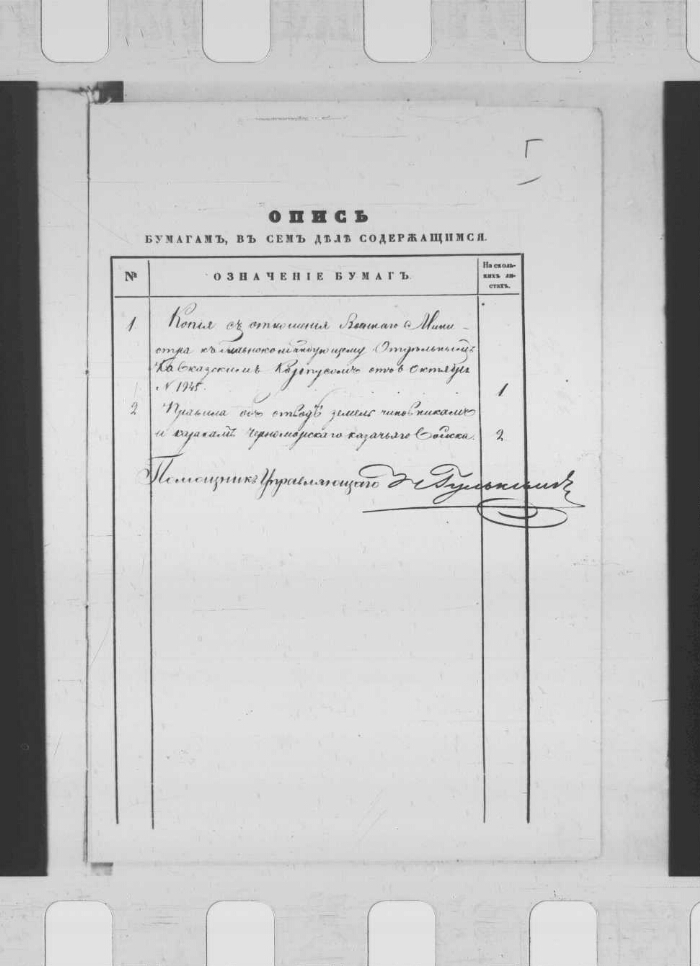 ОПИСЬ
БУМАГАМЪ, ВЪ СЕМЪ ДѢЛѢ СОДЕРЖАЩИМСЯ.
№
ОЗНАЧЕНІЕ БУМАГЪ.
На сколь-
кихъ ли-
стахъ.
1 Копія съ отношенія Военнаго Мини-
стра къ Главнокомандующему Отдѣльнымъ
Кавказскимъ Корпусомъ отъ 6 Октября
№ 1945. 1
2 Правила объ отводѣ земель чиновникамъ
и казакамъ Черноморскаго казачьяго войска. 2
Помощникъ Управляющаго